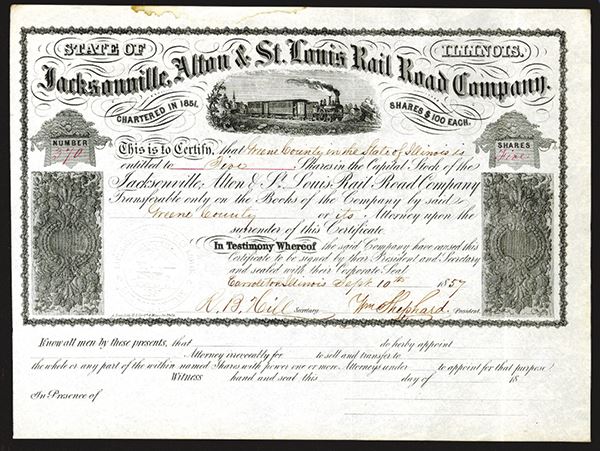 STATE OF ILLINOIS.
Jacksonville, Alton & St. Louis Rail Road Company.
CHARTERED IN 1851. SHARES $100 EACH.
NUMBER
370
SHARES
Five
This is to Certify, that Greene County in the State of Illinois is
entitled to Five Shares in the Capital Stock of the
Jacksonville, Alton & St. Louis Rail-Road Company
Transferable only on the Books of the Company by said
Greene County or its Attorney upon the
surrender of this Certificate.
In Testimony Whereof the said Company have caused this
Certificate to be signed by their President and Secretary
and sealed with their Corporate Seal.
Carrollton Illinois Sept. 10th 1857
R. B. Hill Secretary Wm Shephard President
Know all men by these presents, that do hereby appoint
Attorney irrevocably for to sell and transfer to
the whole or any part of the within named Shares with power one or more Attorneys under to appoint for that purpose
Witness hand and seal this day of 18
In Presence of